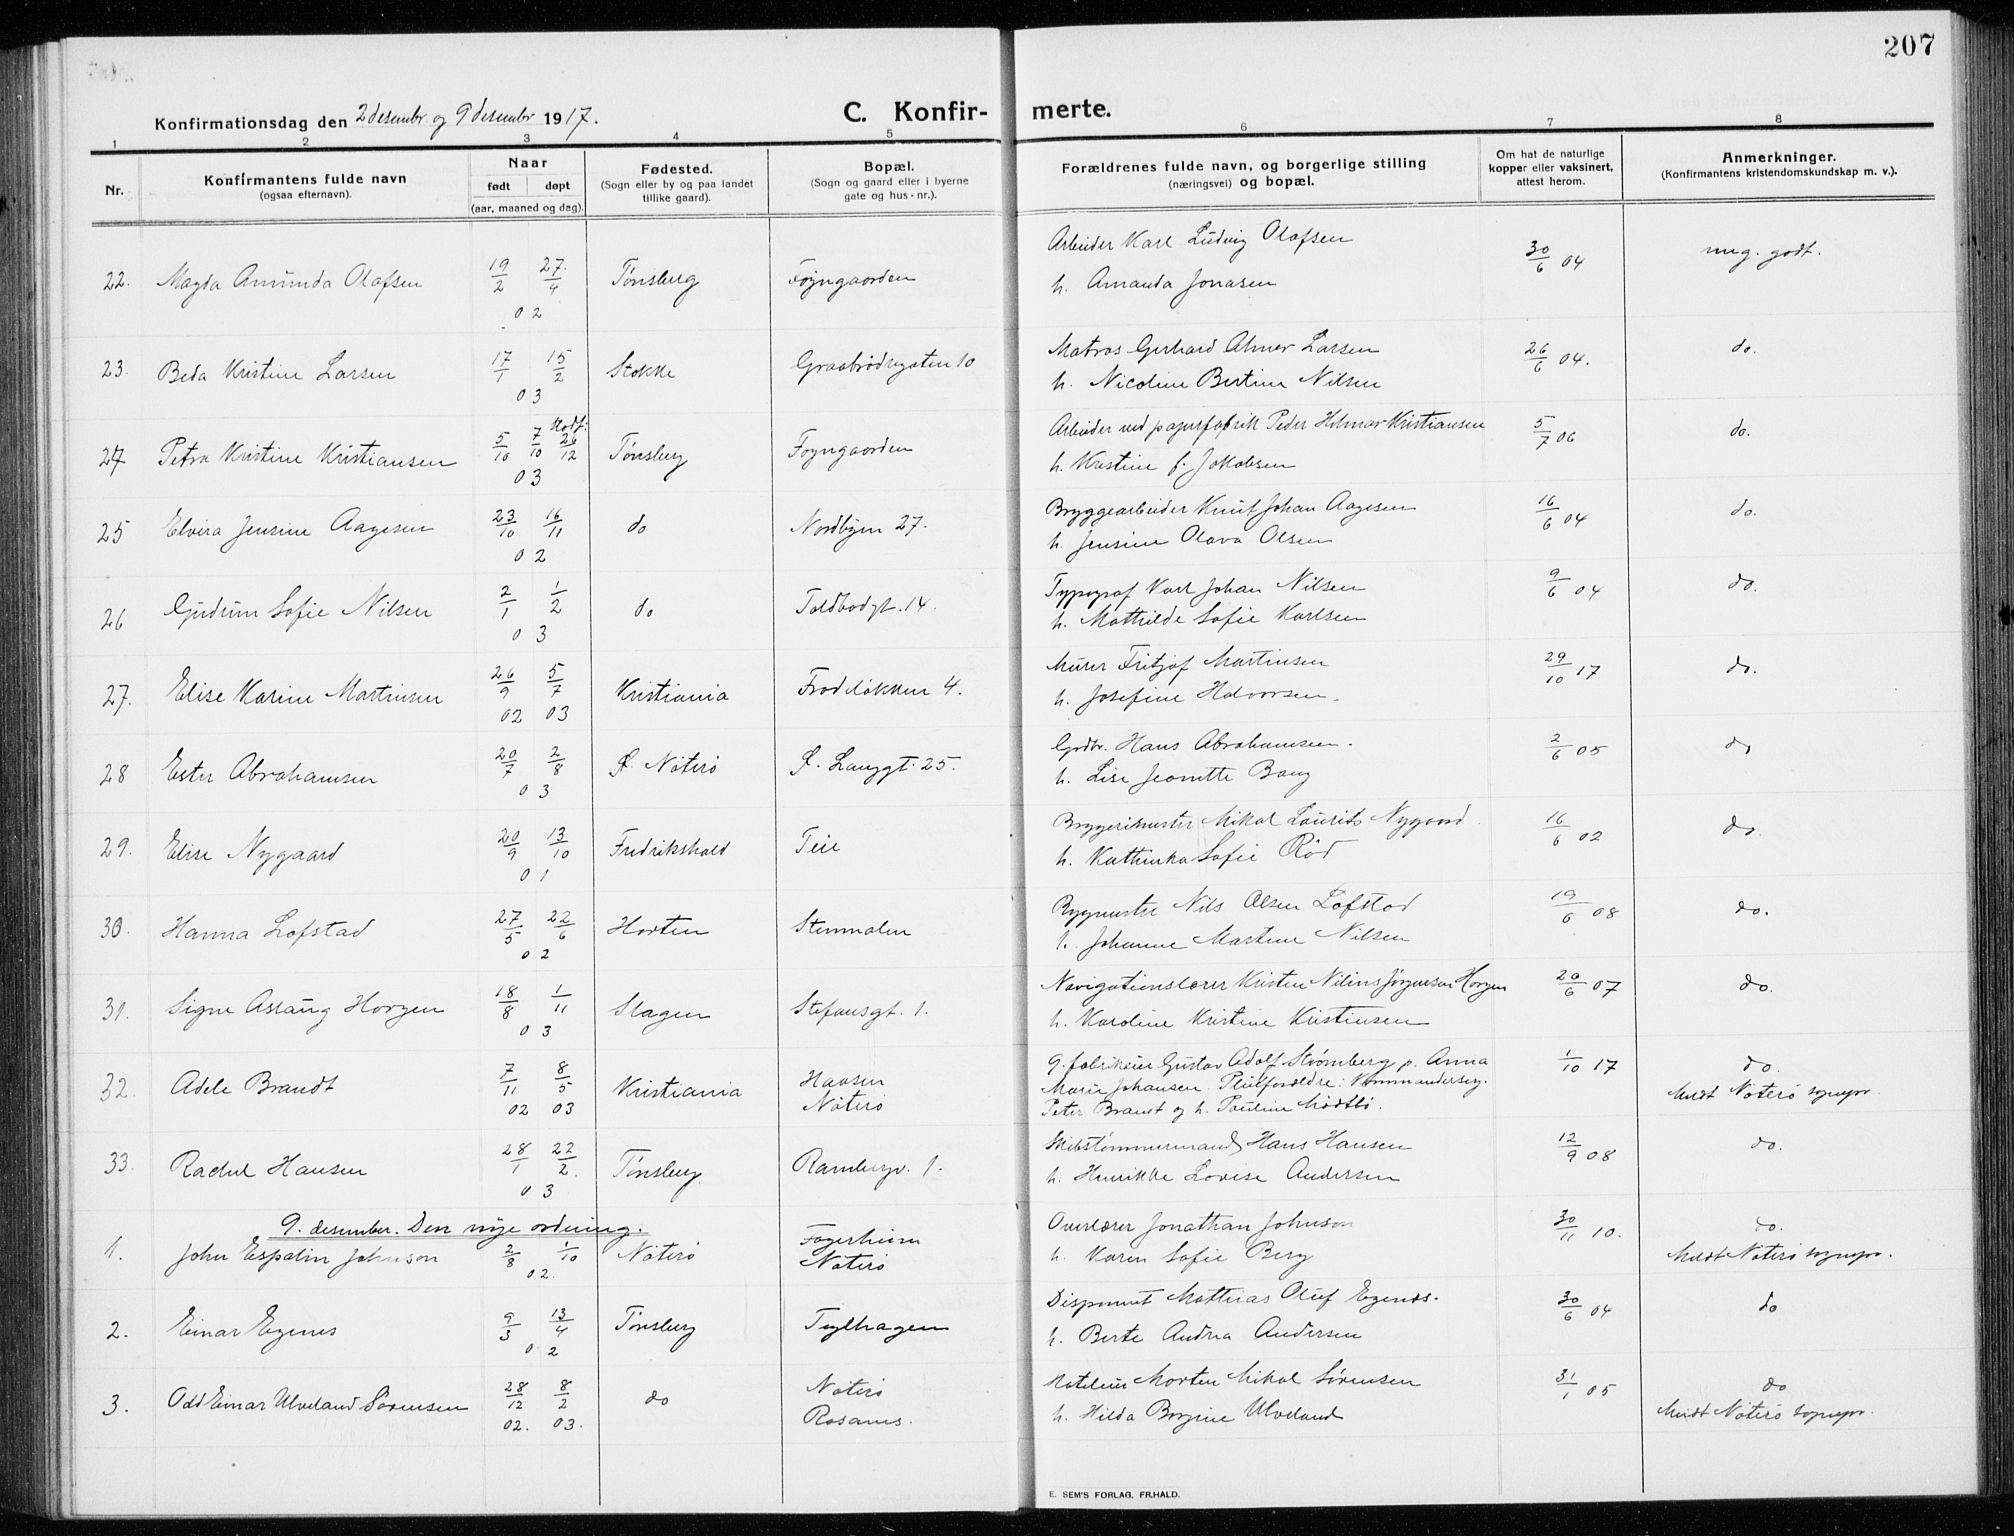 207
Konfirmationsdag den 2 desembr. og 9 desembr 1917.
C. Konfir- merte.
1 2 3 4 5 6 7 8
Nr.
Konfirmantens fulde navn
(ogsaa efternavn).
Naar
født døpt
(aar, maaned og dag).
Fødested.
(Sogn eller by og paa landet
tillike gaard).
Bopæl.
(Sogn og gaard eller i byerne
gate og hus-nr.).
Forældrenes fulde navn, og borgerlige stilling
(næringsvei) og bopæl.
Om hat de naturlige
kopper eller vaksinert,
attest herom.
Anmerkninger.
(Konfirmantens kristendomskundskap m. v.).
22. Magda Amunda Olafsen 19/2 27/4 02 Tønsberg Føyngaarden
Arbeider Karl Ludvig Olafsen 30/6 04 meg. godt.
h. Amanda Jonasen
23. Beda Kristine Larsen 17/1 15/2 03 Stokke Graabrødregaten 10
Matros Gerhard Almer Larsen 26/6 04. do.
h. Nicoline Bertine Nilsen
24 Petra Kristine Kristiansen 5/10 7/10 Stadf: 26/12 03 Tønsberg Føyngaarden
Arbeider ved papirfabrik Peder Hilmar Kristiansen 5/7 06 do.
h. Kristine f. Jakobsen
25 Elvira Jensine Aagesen 23/10 16/11 02 do Nordbyen 27.
Bryggearbeider Knut Johan Aagesen 16/6 04 do.
h. Jensine Olava Olsen
26 Gudrun Sofie Nilsen 2/1 1/2 03 do Toldbodgt. 14.
Typograf Karl Johan Nilsen 9/6 04 do.
h. Mathilde Sofie Karlsen
27. Elise Karine Martinsen 26/9 02 5/7 03 Kristiania Frodeløkken 4.
Murer Fritjof Martinsen 29/10 17 do.
h. Josefine Halvorsen.
28 Ester Abrahamsen 20/7 2/8 03 Ø. Nøterø Ø. Langgt. 25.
Grdbr. Hans Abrahamsen. 2/6 05 do
h. Lise Jeanette Bang
29. Elise Nygaard 20/9 13/10 01 Fredrikshald Teie
Bryggerimester Mikal Laurits Nygaard 16/6 02 do.
h. Kathinka Sofie Rød
30. Hanna Lofstad 27/5 22/6 02 Horten Stenmalen
Bygmester Nils Olsen Lofstad 19/6 08 do.
h. Johanne Martine Nilsen
31. Signe Aslaug Horgen 18/8 1/11 03 Slagen Stefansgt. 1.
Navigationslærer Kristen Nilius Jørgensen Horgen 20/6 07 do.
h. Karoline Kristine Kristensen
32. Adele Brandt 7/11 02 8/5 03 Kristiania Haasen Nøterø
g. fabrikeier Gustav Adolf Strømberg p. Anna 1/10 17 do.
Marie Johansen. Pleieforældre: Kommandersg. Meldt Nøterø sognepr.
Peter Brandt og h. Pauline Mødtbø.
33. Rachel Hansen 28/1 22/2 03 Tønsberg Rambergv. 1.
Skibstømmermand Hans Hansen 12/9 08 do.
h. Henrikke Lovise Andersen
9. desember. Den nye ordning.
1. John Espolin Johnson 2/8 1/10 02. Nøterø Fagerheim Nøterø
Overlærer Jonathan Johnson 30/11 10. do.
h. Karen Sofie Berg Meldt Nøterø sognepr.
2. Einar Egenes 9/3 13/4 02 Tønsberg Teglhagen
Disponent Mathias Oluf Egenes. 30/6 04 do
h. Berte Andrea Andersen
3. Odd Einar Ulveland Sørensen 28/12 02. 8/2 03. do Nøterø Rosanes.
Hoteleier Morten Mikal Sørensen 31/1 05 do
h. Hilda Borgine Ulveland Meldt Nøterø sognepr.
E. SEM'S FORLAG, FR.HALD.